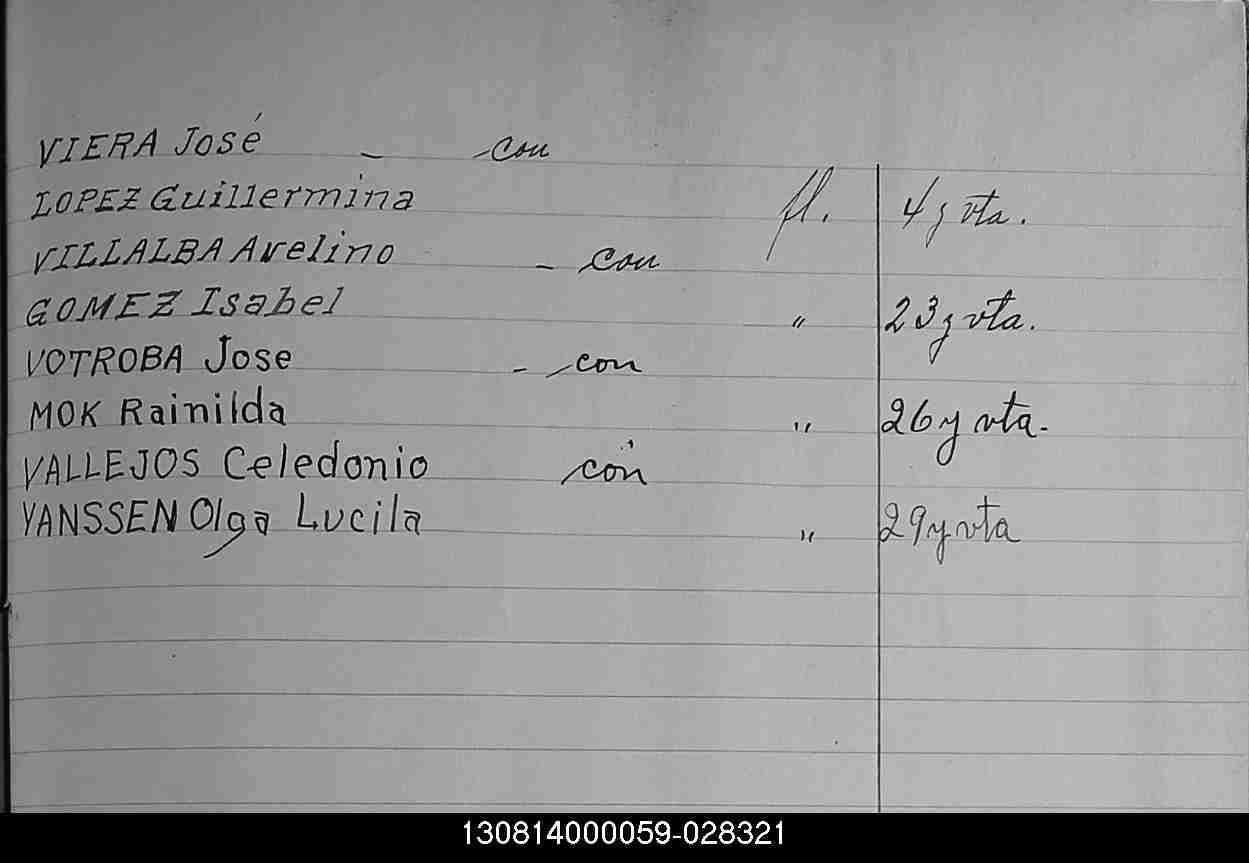 VIERA José - con
LOPEZ Guillermina fl. 4 y vta.
VILLALBA Avelino - con
GOMEZ Isabel " 23 y vta.
VOTROBA Jose - con
MOK Rainilda " 26 y vta.
VALLEJOS Celedonio con
YANSSEN Olga Lucila " 29 y vta
130814000059-028321